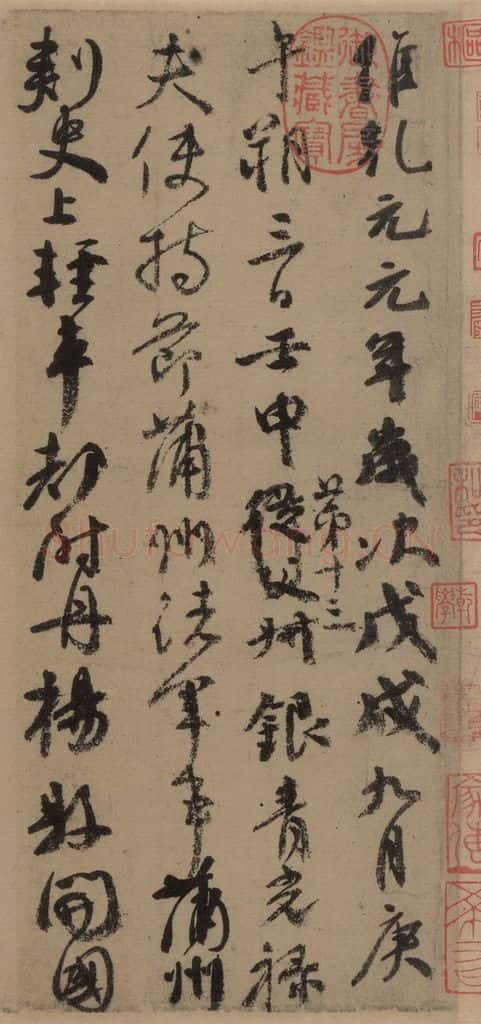 維乾元元年歲次戊戌九月庚
午朔三日壬申
第十三
從父叔銀青光祿
夫使持節蒲州諸軍事蒲州
刺史上輕車都尉丹楊縣開國
御書房鑑藏寶
乾學
shufawang.CN